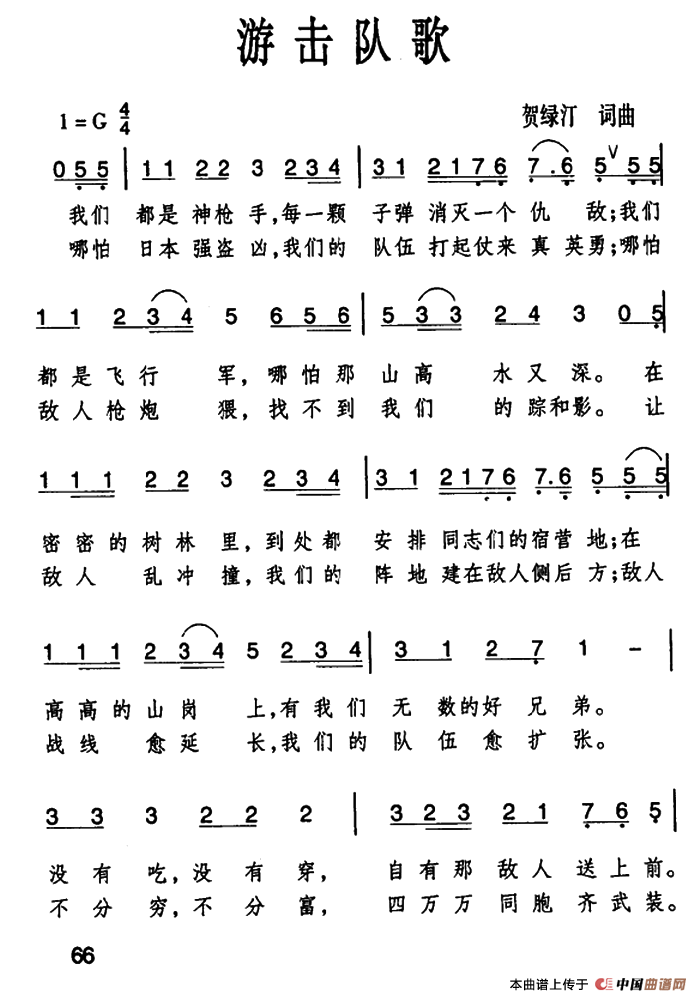 游击队歌
1=G 4/4 贺绿汀 词曲
0 5 5 | 1 1 2 2 3 2 3 4 | 3 1 2 1 7 6 7 . 6 5 V 5 5
我们 都是神枪手,每一颗 子弹消灭一个仇 敌;我们
哪怕 日本强盗凶,我们的 队伍打起仗来真英勇;哪怕
1 1 2 3 4 5 6 5 6 | 5 3 3 2 4 3 0 5
都是飞行 军,哪怕那山高 水又深。在
敌人枪炮 猥,找不到我们 的踪和影。让
1 1 1 2 2 3 2 3 4 | 3 1 2 1 7 6 7 . 6 5 5 5
密密的树林里,到处都 安排同志们的宿营地;在
敌人 乱冲撞,我们的 阵地建在敌人侧后方;敌人
1 1 1 2 3 4 5 2 3 4 | 3 1 2 7 1 –
高高的山岗 上,有我们 无数的好兄弟。
战线 愈延 长,我们的 队伍愈扩张。
3 3 3 2 2 2 | 3 2 3 2 1 7 6 5
没有吃,没有穿, 自有那敌人送上前。
不分穷,不分富, 四万万同胞齐武装。
66
本曲谱上传于 中国曲谱网